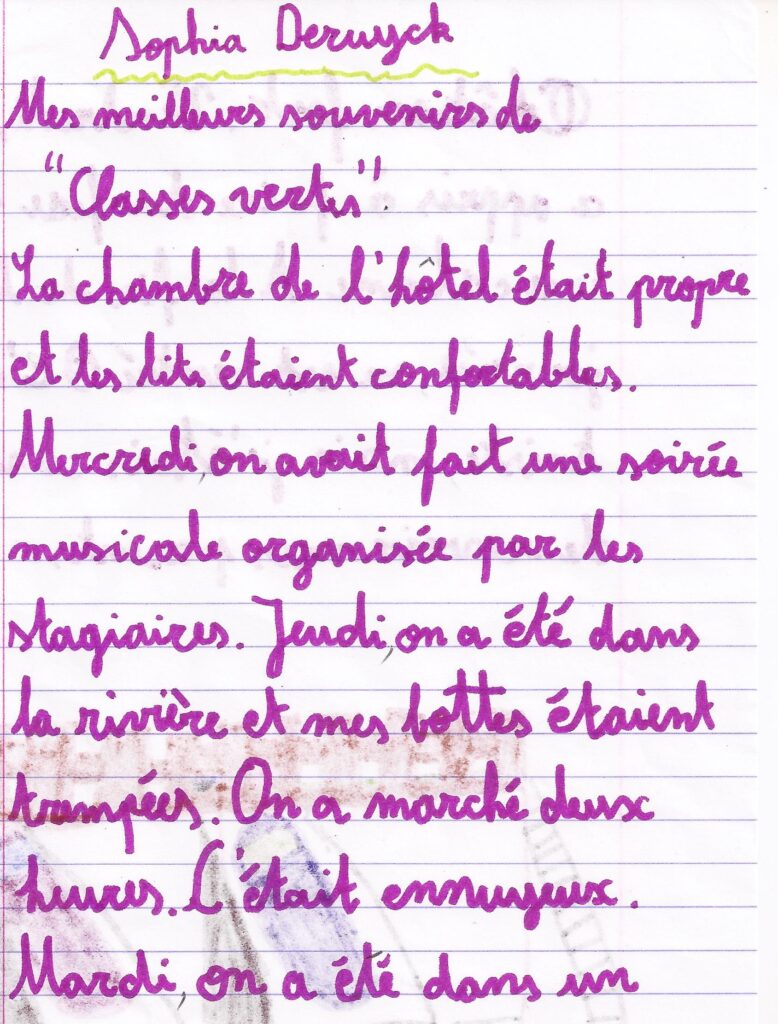 Sophia Deruyck
Mes meilleurs souvenirs de
"Classes vertes"
La chambre de l'hôtel était propre
et les lits étaient confortables.
Mercredi, on avait fait une soirée
musicale organisée par les
stagiaires. Jeudi, on a été dans
la rivière et mes bottes étaient
trempées. On a marché deux
heures. C'était ennuyeux.
Mardi, on a été dans un